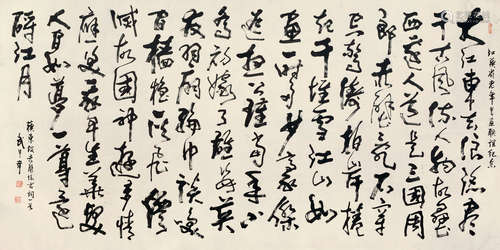 大江東去浪淘盡
千古風流人物故壘
西邊人道是三國周
郎赤壁亂石穿
空驚濤拍岸捲
起千堆雪江山如
畫一時多少豪傑
遙想公瑾當年小
喬初嫁了雄姿英
發羽扇綸巾談笑
間檣櫓灰飛煙
滅故國神遊多情
應笑我早生華髮
人間如夢一尊還
酹江月
蘇東坡赤壁懷古詞
武中奇